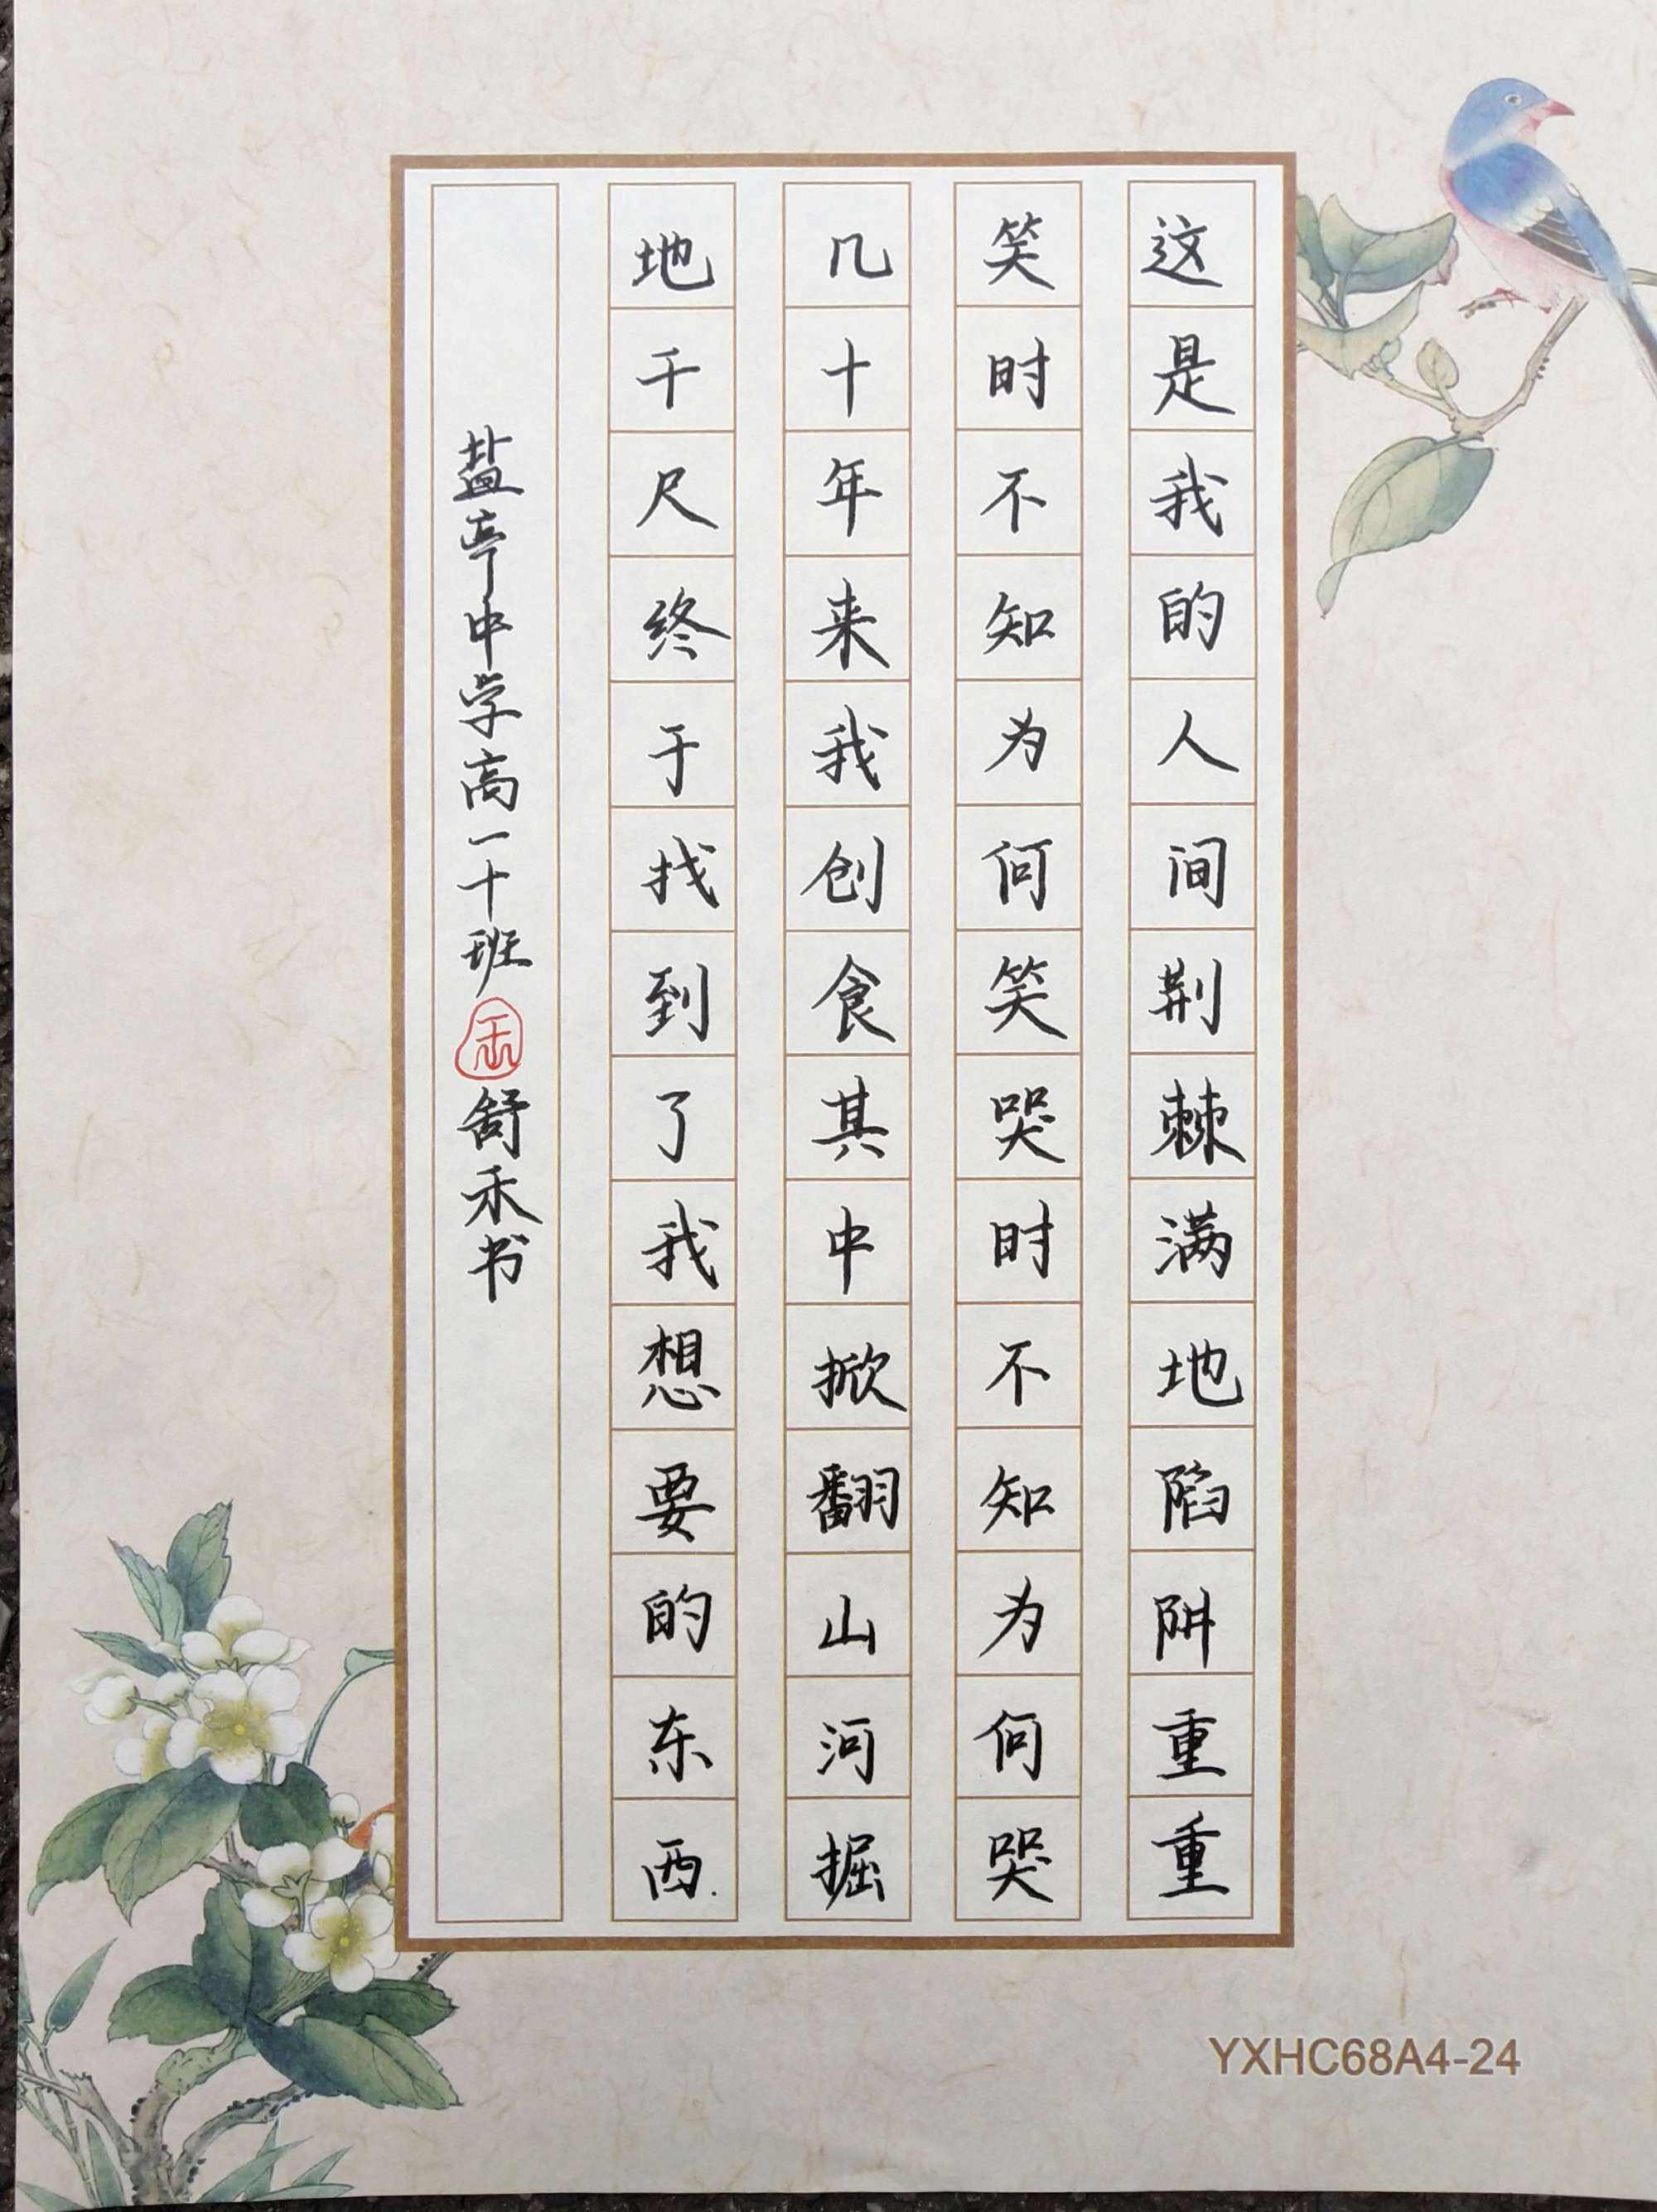 这是我的人间荆棘满地陷阱重重
笑时不知为何笑哭时不知为何哭
几十年来我创食其中掀翻山河掘
地千尺终于找到了我想要的东西.
盐亭中学高一十班
舒禾书
YXHC68A4-24